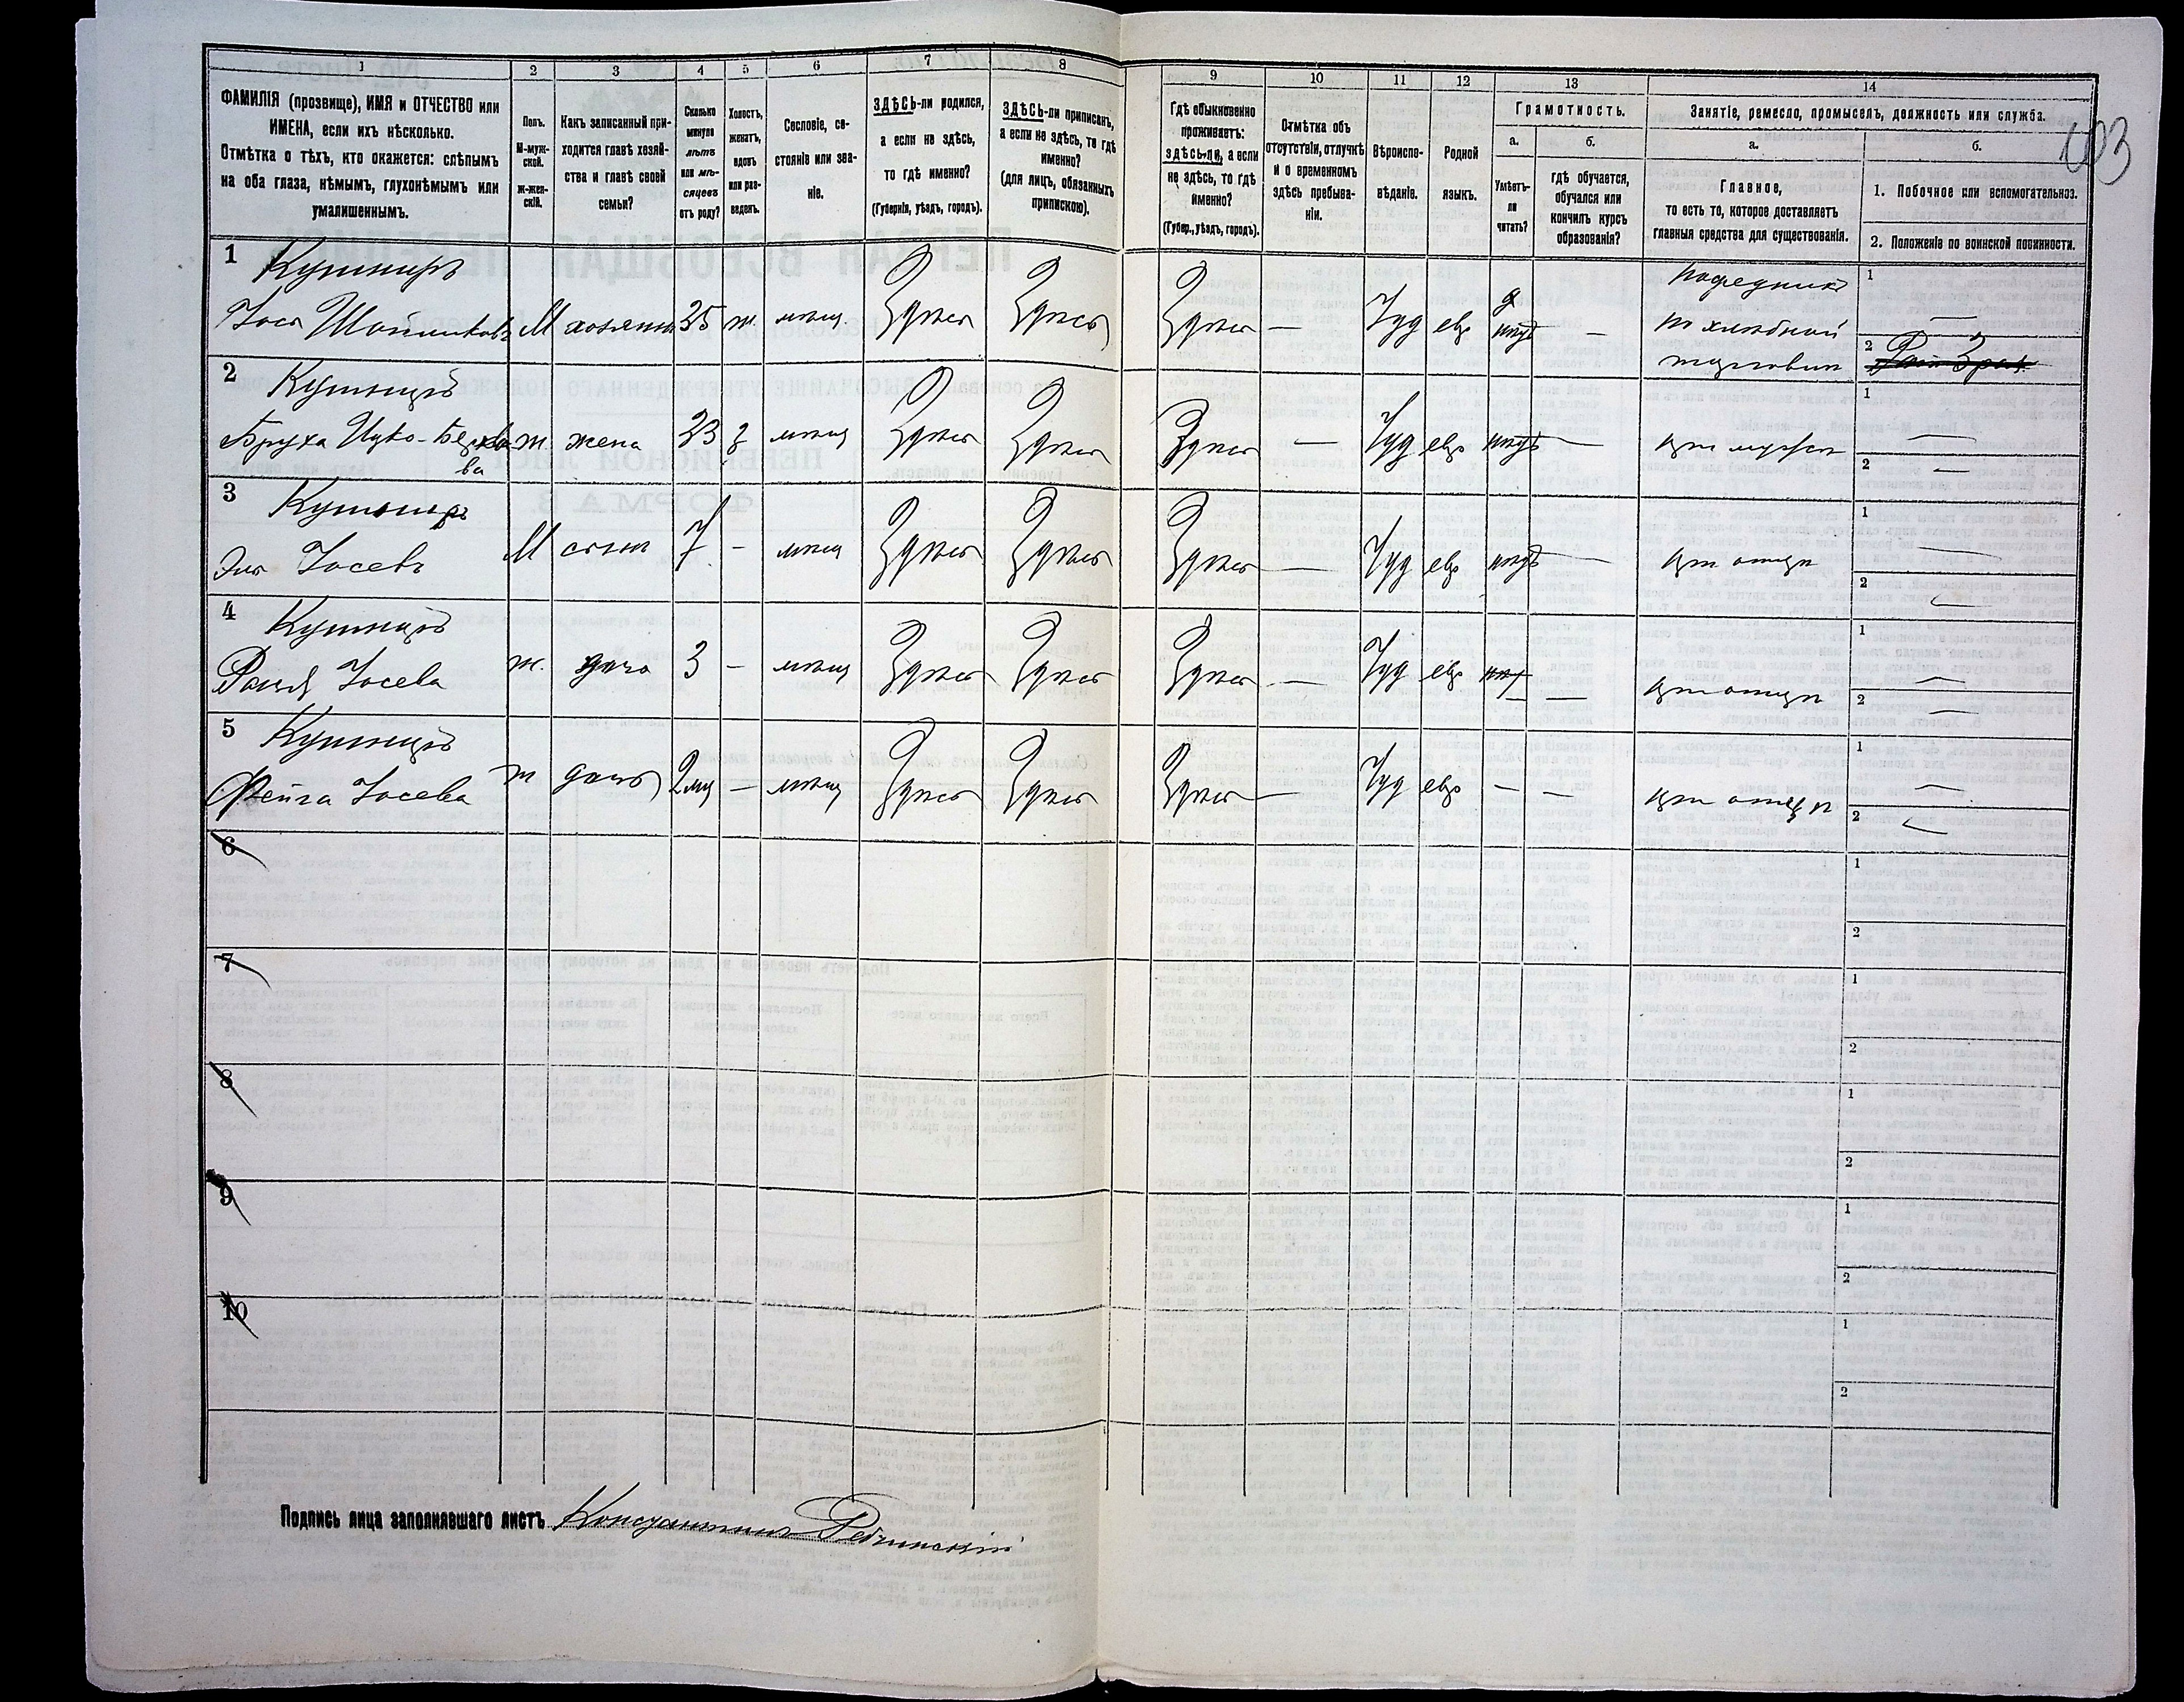 603
1
2
3
4
5
6
7
8
9
10
11
12
13
14
ФАМИЛІЯ (прозвище), ИМЯ и ОТЧЕСТВО или
ИМЕНА, если ихъ нѣсколько.
Отмѣтка о тѣхъ, кто окажется: слѣпымъ
на оба глаза, нѣмымъ, глухонѣмымъ или
умалишеннымъ.
Полъ.
М-муж-
ской.
Ж-жен-
скій.
Какъ записанный при-
ходится главѣ хозяй-
ства и главѣ своей
семьи?
Сколько
минуло
лѣтъ
или мѣ-
сяцевъ
отъ роду?
Холостъ,
женатъ,
вдовъ
или раз-
веденъ.
Сословіе, со-
стояніе или зва-
ніе.
ЗДѢСЬ-ли родился,
а если не здѣсь,
то гдѣ именно?
(Губернія, уѣздъ, городъ).
ЗДѢСЬ-ли приписанъ,
а если не здѣсь, то гдѣ
именно?
(для лицъ, обязанныхъ
припискою).
Гдѣ обыкновенно
проживаетъ:
здѣсь-ли, а если
не здѣсь, то гдѣ
именно?
(Губер., уѣздъ, городъ).
Отмѣтка объ
отсутствіи, отлучкѣ
и о временномъ
здѣсь пребыва-
ніи.
Вѣроиспо-
вѣданіе.
Родной
языкъ.
Грамотность.
а.
Умѣетъ-
ли
читать?
б.
гдѣ обучается,
обучался или
кончилъ курсъ
образованія?
Занятіе, ремесло, промыселъ, должность или служба.
а.
Главное,
то есть то, которое доставляетъ
главныя средства для существованія.
б.
1. Побочное или вспомогательноз.
2. Положеніе по воинской повинности.
1 Кушниръ
М хозяинъ 35 ж. мѣщ. Здѣсь Здѣсь Здѣсь — Іуд евр — по хлѣбной торговли
1
2
2 Кушниръ
Бруха ж. жена 33 з мѣщ Здѣсь Здѣсь Здѣсь — Іуд евр — при мужѣ
1 —
2 —
3 Кушниръ
Іосевъ М сынъ 7 - мѣщ Здѣсь Здѣсь Здѣсь — Іуд евр — при отцѣ
1 —
2 —
4 Кушниръ
Іосева ж. дочь 3 - мѣщ Здѣсь Здѣсь Здѣсь — Іуд евр — при отцѣ
1 —
2 —
5 Кушниръ
Фейга Іосева ж дочь 2 мѣ — мѣщ Здѣсь Здѣсь Здѣсь — Іуд евр — — при отцѣ
1 —
2 —
6
1
2
7
1
2
8
1
2
9
1
2
10
1
2
Подпись лица заполнявшаго листъ